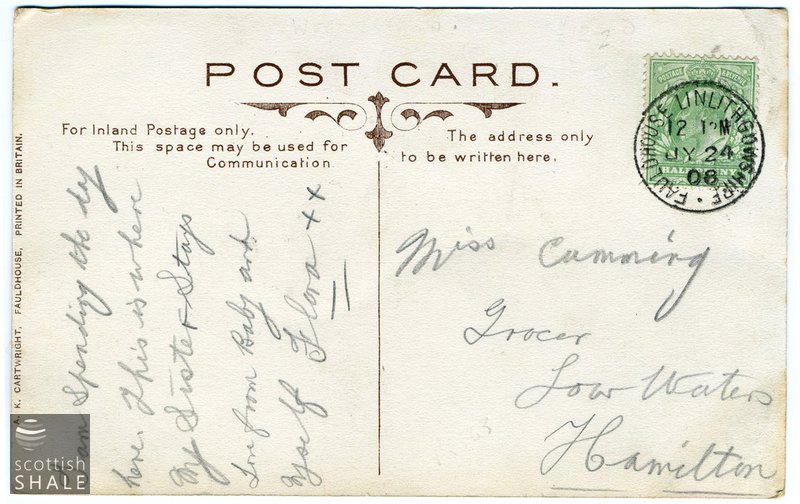 POST CARD.
For Inland Postage only.
This space may be used for
Communication
The address only
to be written here.
A. K. CARTWRIGHT, FAULDHOUSE, PRINTED IN BRITAIN.
FAULDHOUSE LINLITHGOWSHIRE
12 PM
JY 24
08
POSTAGE & REVENUE
HALFPENNY
I am Spending the day
here. This is where
My Sister Stays
Love from Baby and
Myself Flora ++
Miss Cumming
Grocer
Low Waters
Hamilton
scottish
SHALE